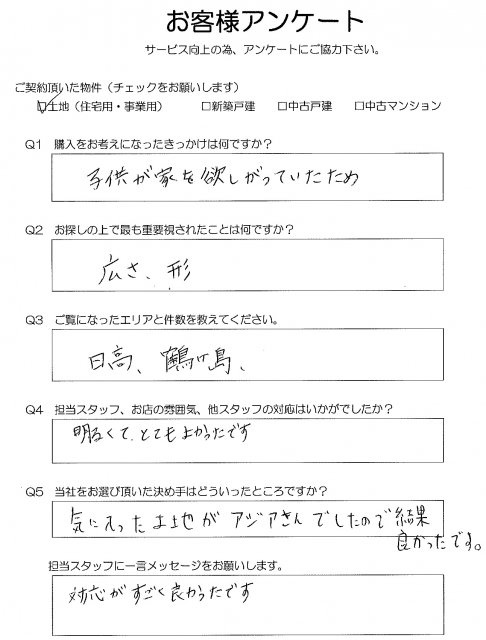 お客様アンケート
サービス向上の為、アンケートにご協力下さい。
ご契約頂いた物件（チェックをお願いします）
☑土地（住宅用・事業用） □新築戸建 □中古戸建 □中古マンション
Q1 購入をお考えになったきっかけは何ですか？
子供が家を欲しがっていたため
Q2 お探しの上で最も重要視されたことは何ですか？
広さ、形
Q3 ご覧になったエリアと件数を教えてください。
日高、鶴ヶ島、
Q4 担当スタッフ、お店の雰囲気、他スタッフの対応はいかがでしたか？
明るくて、とてもよかったです
Q5 当社をお選び頂いた決め手はどういったところですか？
気に入った土地がアジアさんでしたので結果
良かったです。
担当スタッフに一言メッセージをお願いします。
対応がすごく良かったです